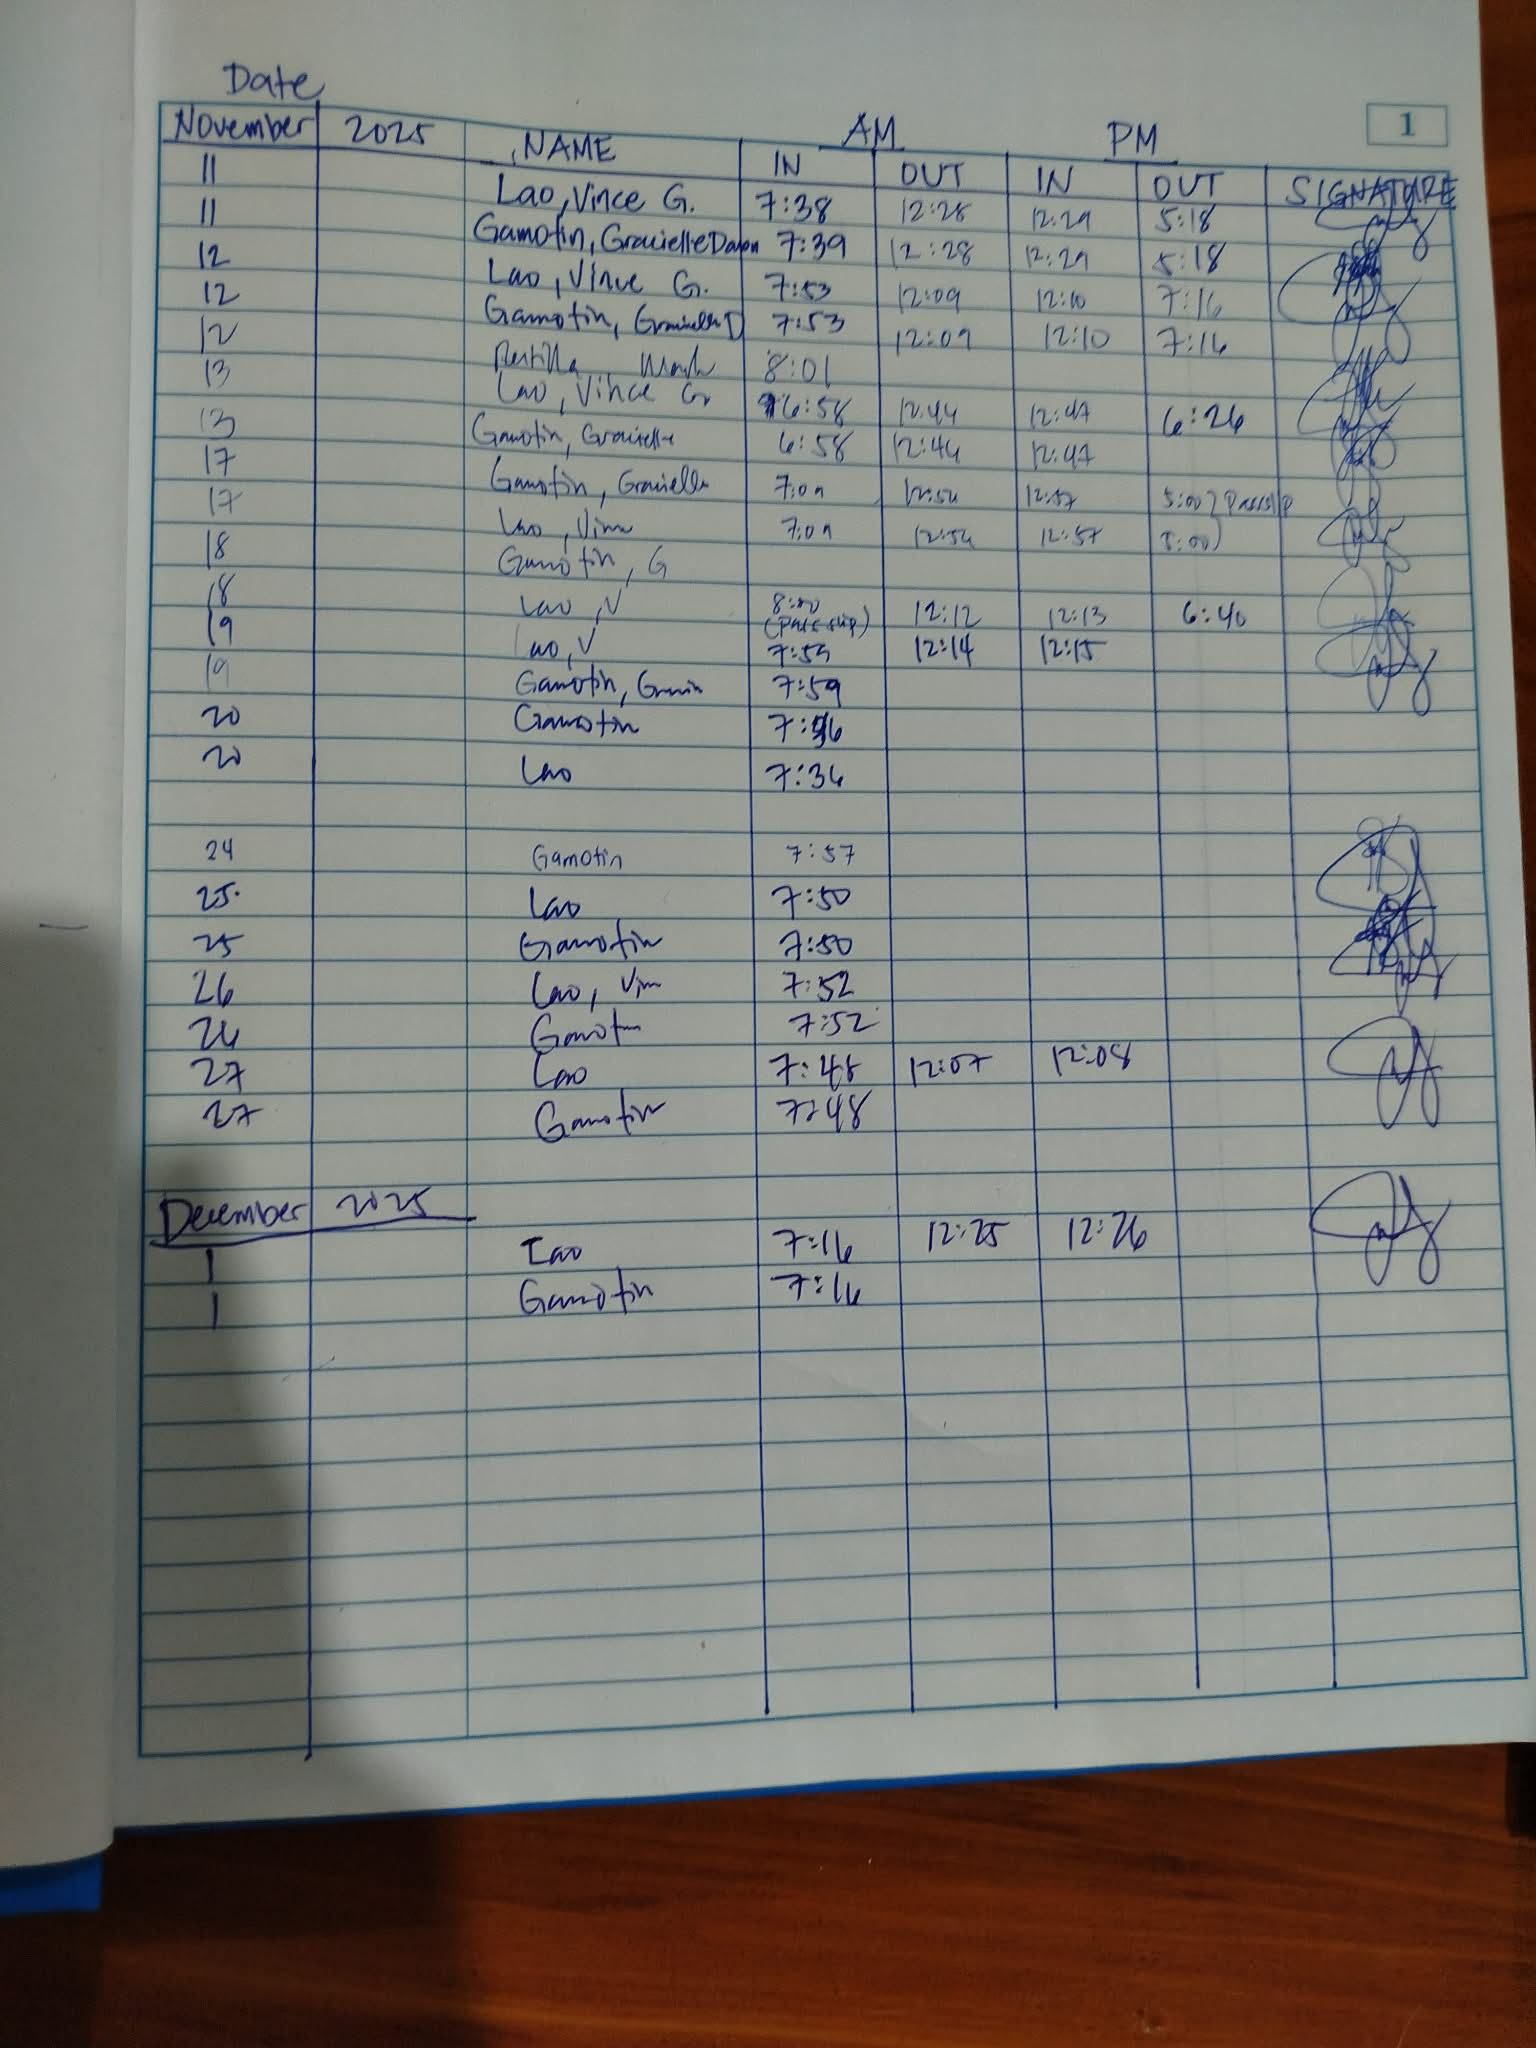 Date
1
November 2025 NAME AM PM
IN OUT IN OUT SIGNATURE
11 Lao, Vince G. 7:38 12:28 12:29 5:18
11 Gamotin, Gracielle 7:39 12:28 12:29 5:18
12 Lao, Vince G. 7:53 12:09 12:10 7:16
12 Gamotin, Gracielle D 7:53 12:09 12:10 7:16
12 8:01
13 Lao, Vince G 6:58 12:44 12:47 6:26
13 Gamotin, Gracielle 6:58 12:44 12:47
17 Gamotin, Gracielle 7:09 12:56 12:57 5:00 } Passslip
17 Lao, Vince 7:09 12:56 12:57 5:00 }
18 Gamotin, G
18 Lao, V 8:00 (pass slip) 12:12 12:13 6:40
19 Lao, V 7:59 12:14 12:15
19 Gamotin, 7:59
20 Gamotin 7:36
20 Lao 7:36
24 Gamotin 7:57
25. Lao 7:50
25 Gamotin 7:50
26 Lao, Vin 7:52
26 Gamotin 7:52
27 Lao 7:48 12:07 12:08
27 Gamotin 7:48
December 2025
1 Lao 7:16 12:25 12:26
1 Gamotin 7:16